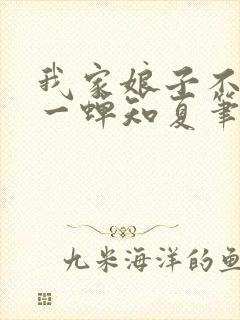 我家娘子不
一蝉知夏笔
九米海洋的鱼